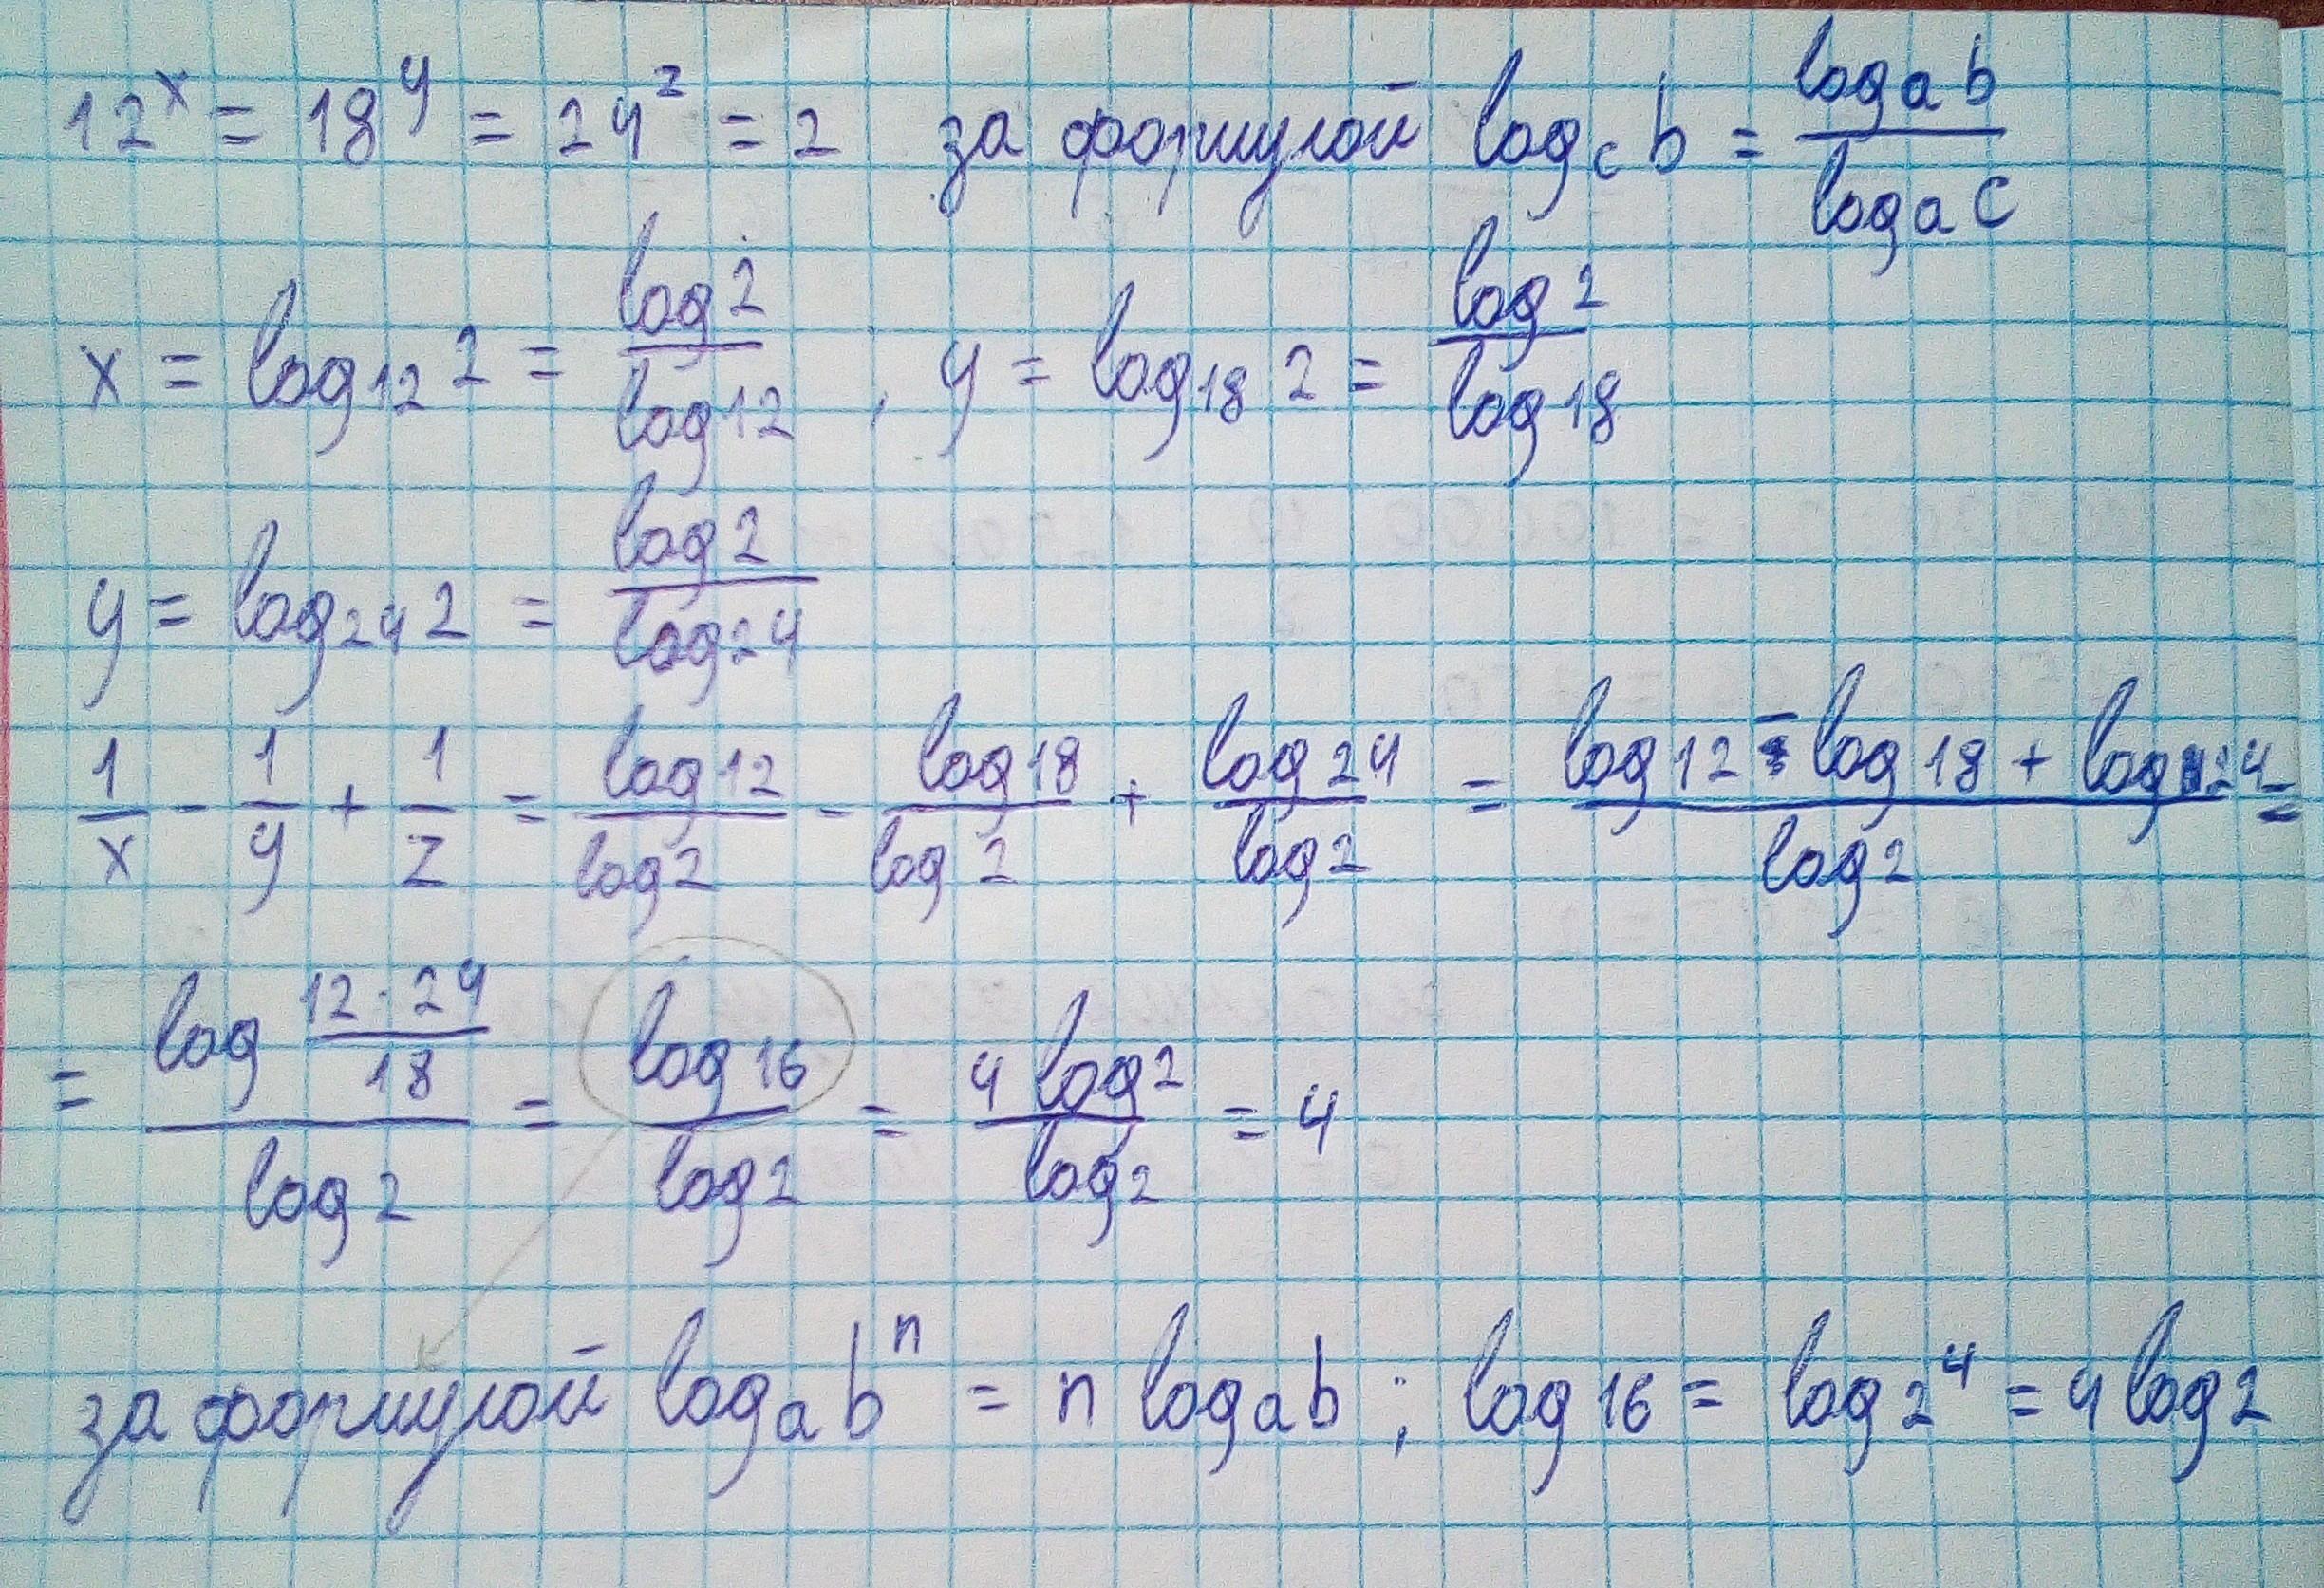 12^x = 18^y = 24^z = 2 за формулой log_c b = log_a b / log_a c
x = log_12 2 = log 2 / log 12 , y = log_18 2 = log 2 / log 18
y = log_24 2 = log 2 / log 24
1/x - 1/y + 1/z = log 12 / log 2 - log 18 / log 2 + log 24 / log 2 = (log 12 - log 18 + log 24) / log 2 =
= log (12 · 24 / 18) / log 2 = log 16 / log 2 = 4 log 2 / log 2 = 4
за формулой log_a b^n = n log_a b ; log 16 = log 2^4 = 4 log 2